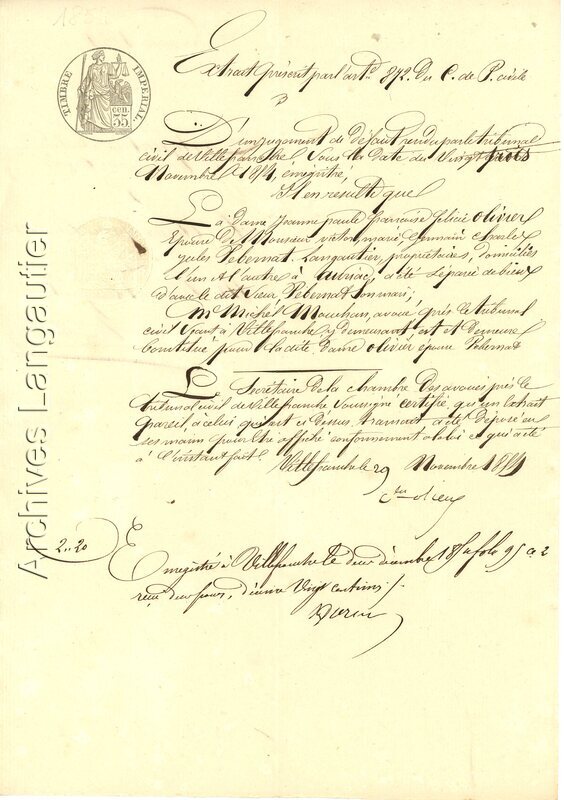 TIMBRE IMPERIAL
35 cen.
Extrait prescrit par l'art. 872. Du C. de P. civile
D'un jugement de défaut rendu par le tribunal
civil de Villefranche, sous la date du Vingt trois
Novembre enregistré,
Il en resulte que
La dame Jeanne paule francoise felicie olivier
Epouse De Monsieur victor, marie, Germain Charles
jules Pebernat Langautier, propriétaires, domiciliés
l'un et l'autre à a été séparée de biens
d'avec le dit sieur Pebernat son mari;
Me Michel avoué près le tribunal
civil séant à Villefranche y demeurant, est et demeure
Constitué pour la dite dame olivier épouse Pebernat
Le Secrétaire de la chambre Des avoués près le
tribunal civil de Villefranche soussigné certifie, qu'un extrait
pareil à celui qui est ci dessus, transcrit a été déposé en
ses mains pour être affiché conformément à la loi et qui a été
à l'instant fait.
Villefranche le 29 Novembre
2..20
Enregistré à Villefranche le deux décembre folo 95 c 2
reçu deux francs, décime vingt centimes /.
Archives Langautier